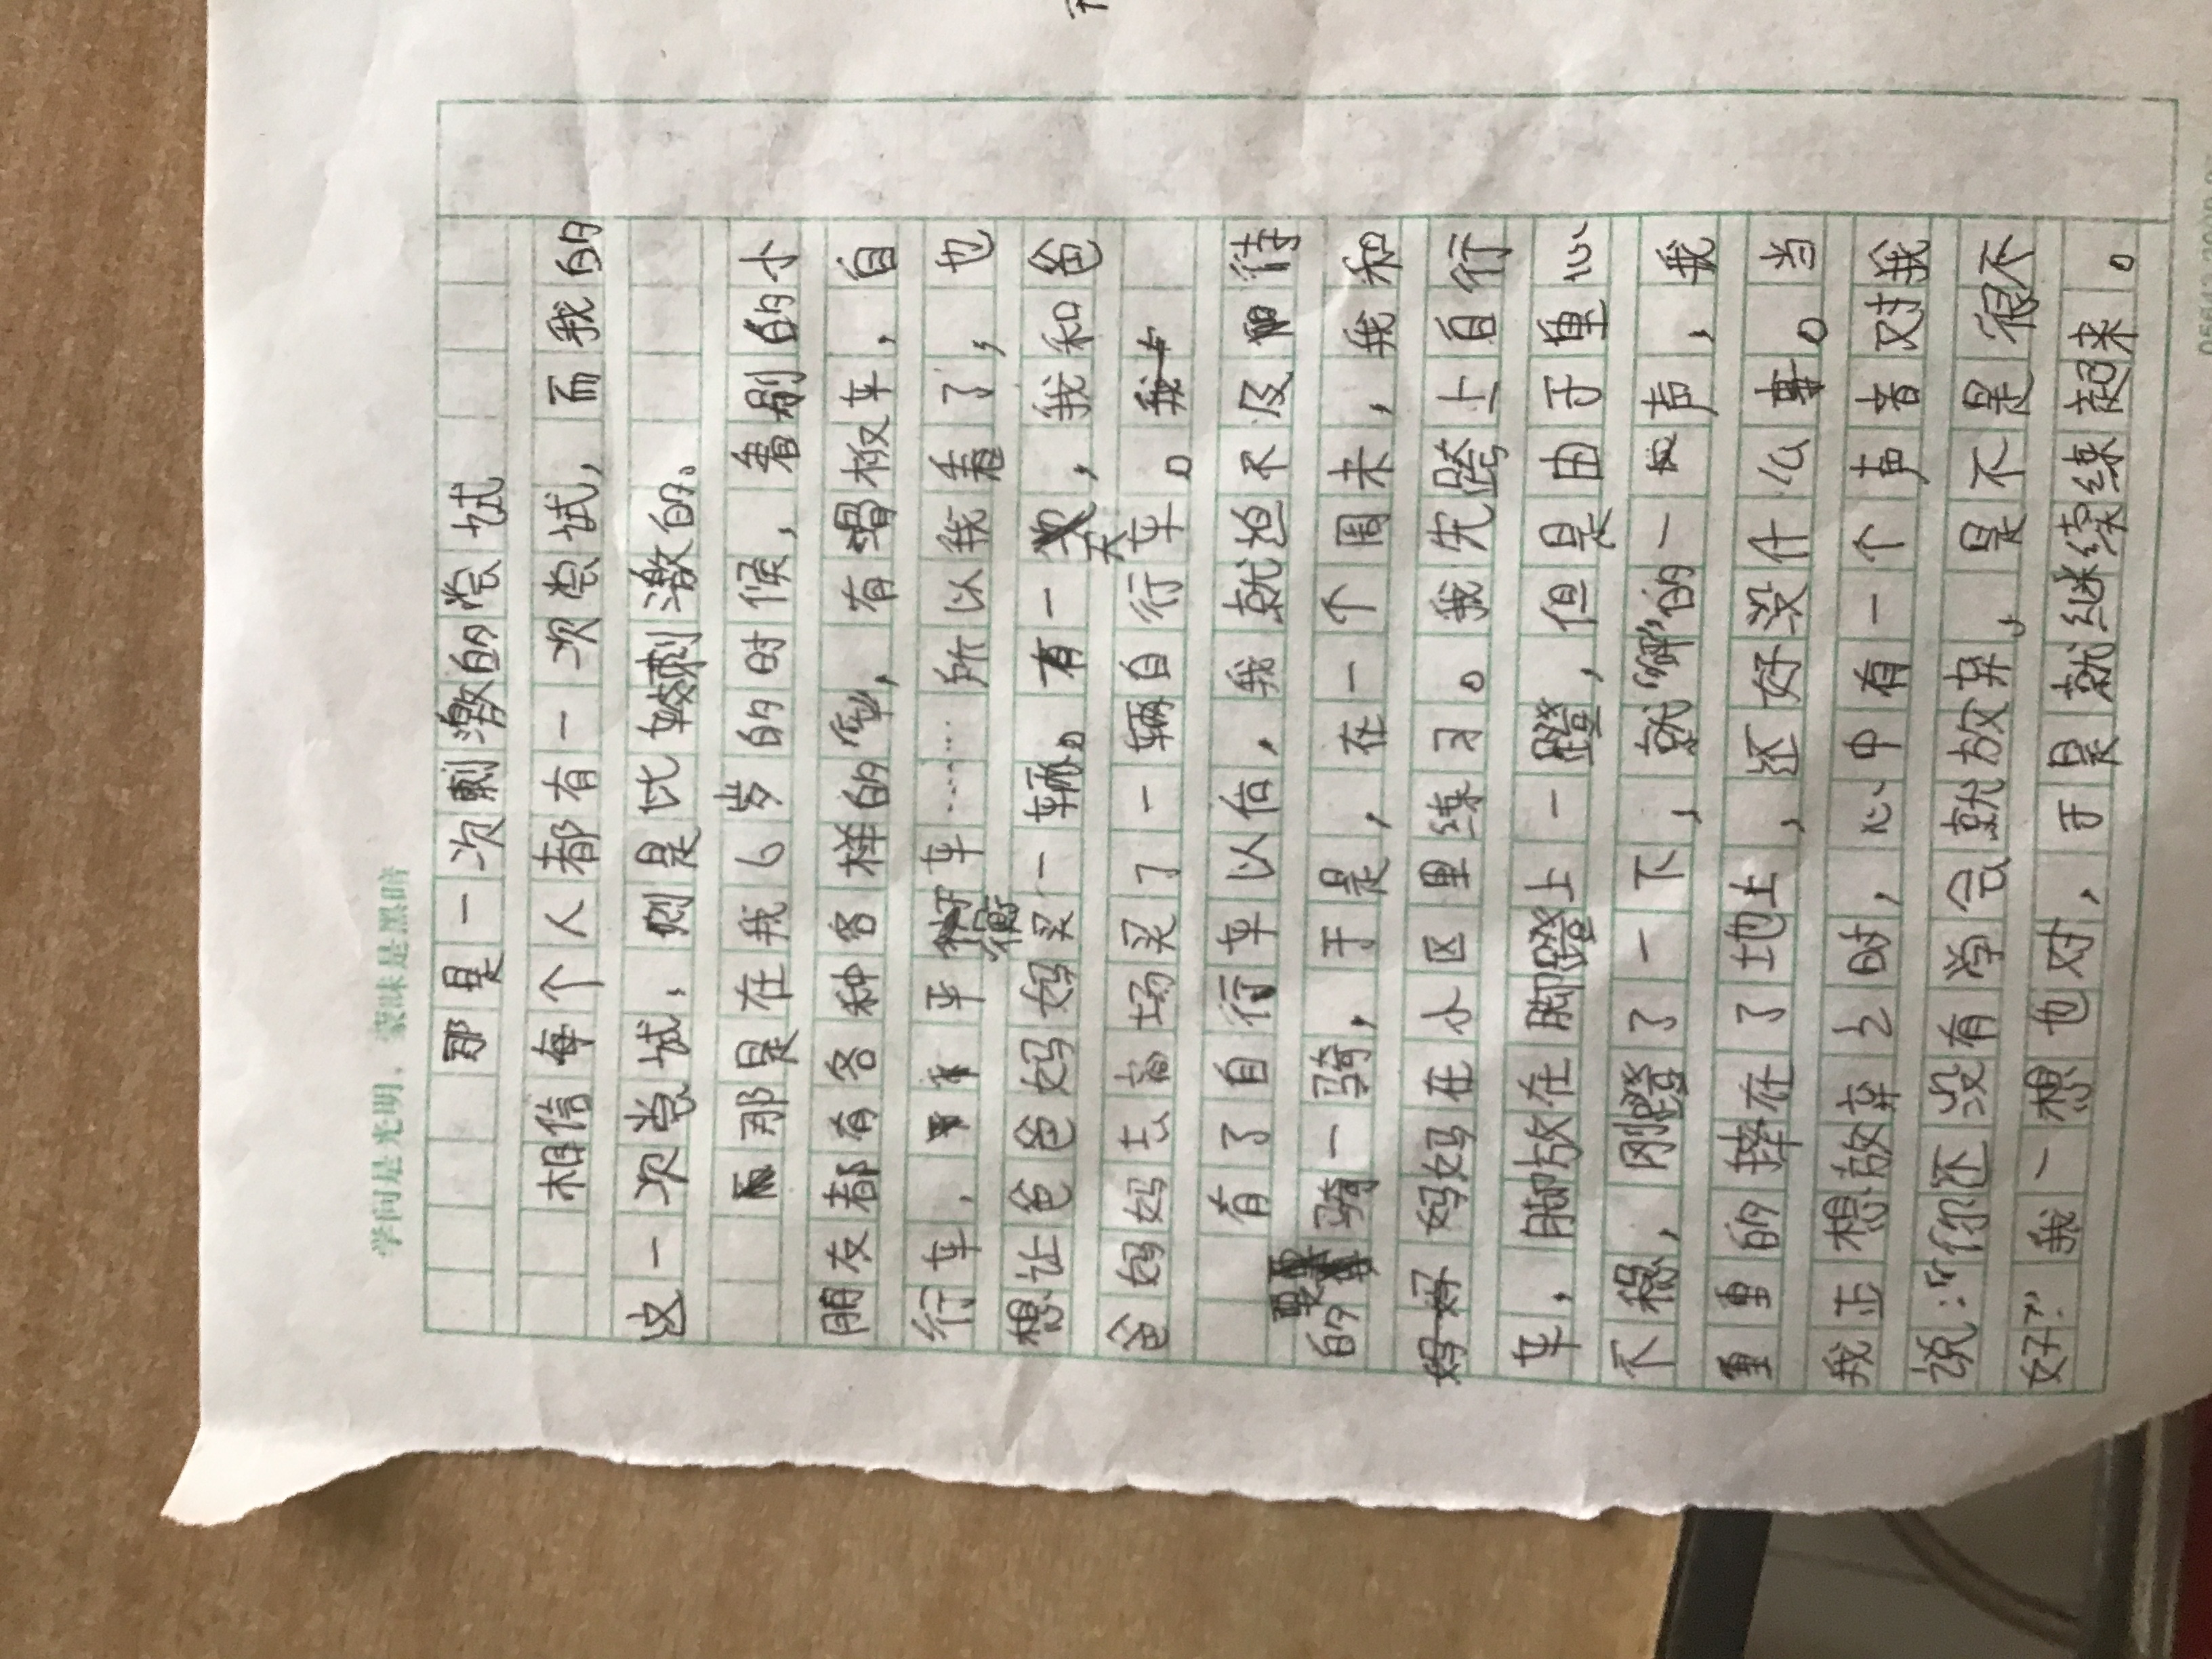 学问是光明，蒙昧是黑暗
那是一次刺激的尝试
相信每个人都有一次尝试，而我的
这一次尝试，则是比较刺激的。
那是在我6岁的时候，看别的小
朋友都有各种各样的车，有滑板车，自
行车，平衡车……所以我看了，也
想让爸爸妈妈买一辆。有一天，我和爸
爸妈妈去商场买了一辆自行车。
有了自行车以后，我就迫不及待
的要骑一骑，于是，在一个周末，我和
妈妈在小区里练习。我先跨上自行
车，脚放在脚蹬上一蹬，但是由于重心
不稳，刚蹬了一下，就“砰”的一声，我
重重的摔在了地上，还好没什么事。当
我正想放弃之时，心中有一个声音对我
说：“你还没有学会就放弃，是不是很不
好？”我一想也对，于是就继续练起来。